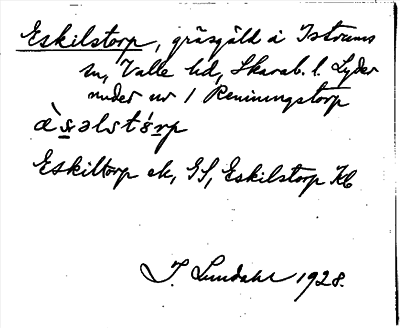 Eskilstorp, gräsgäld å Istrums
sn, Valle hd, Skarab. l. Lyder
under nr 1 Reningstorp
Eskiltorp ek, GS, Eskilstorp Kb
J. Lundahl 1928.